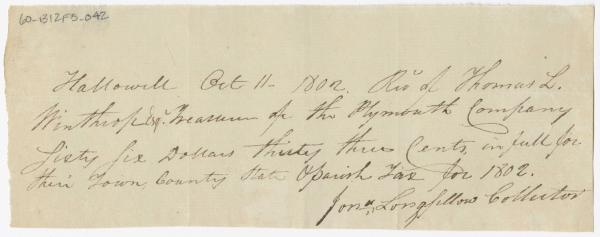 60-B12F5-042
Hallowell Oct 11 - 1802. Recd of Thomas L.
Winthrop Esqr. Treasurer of the Plymouth Company
Sixty Six Dollars thirty three Cents, in full for
their Town, County State & parish Tax for 1802.
Jona, Longfellow Collector